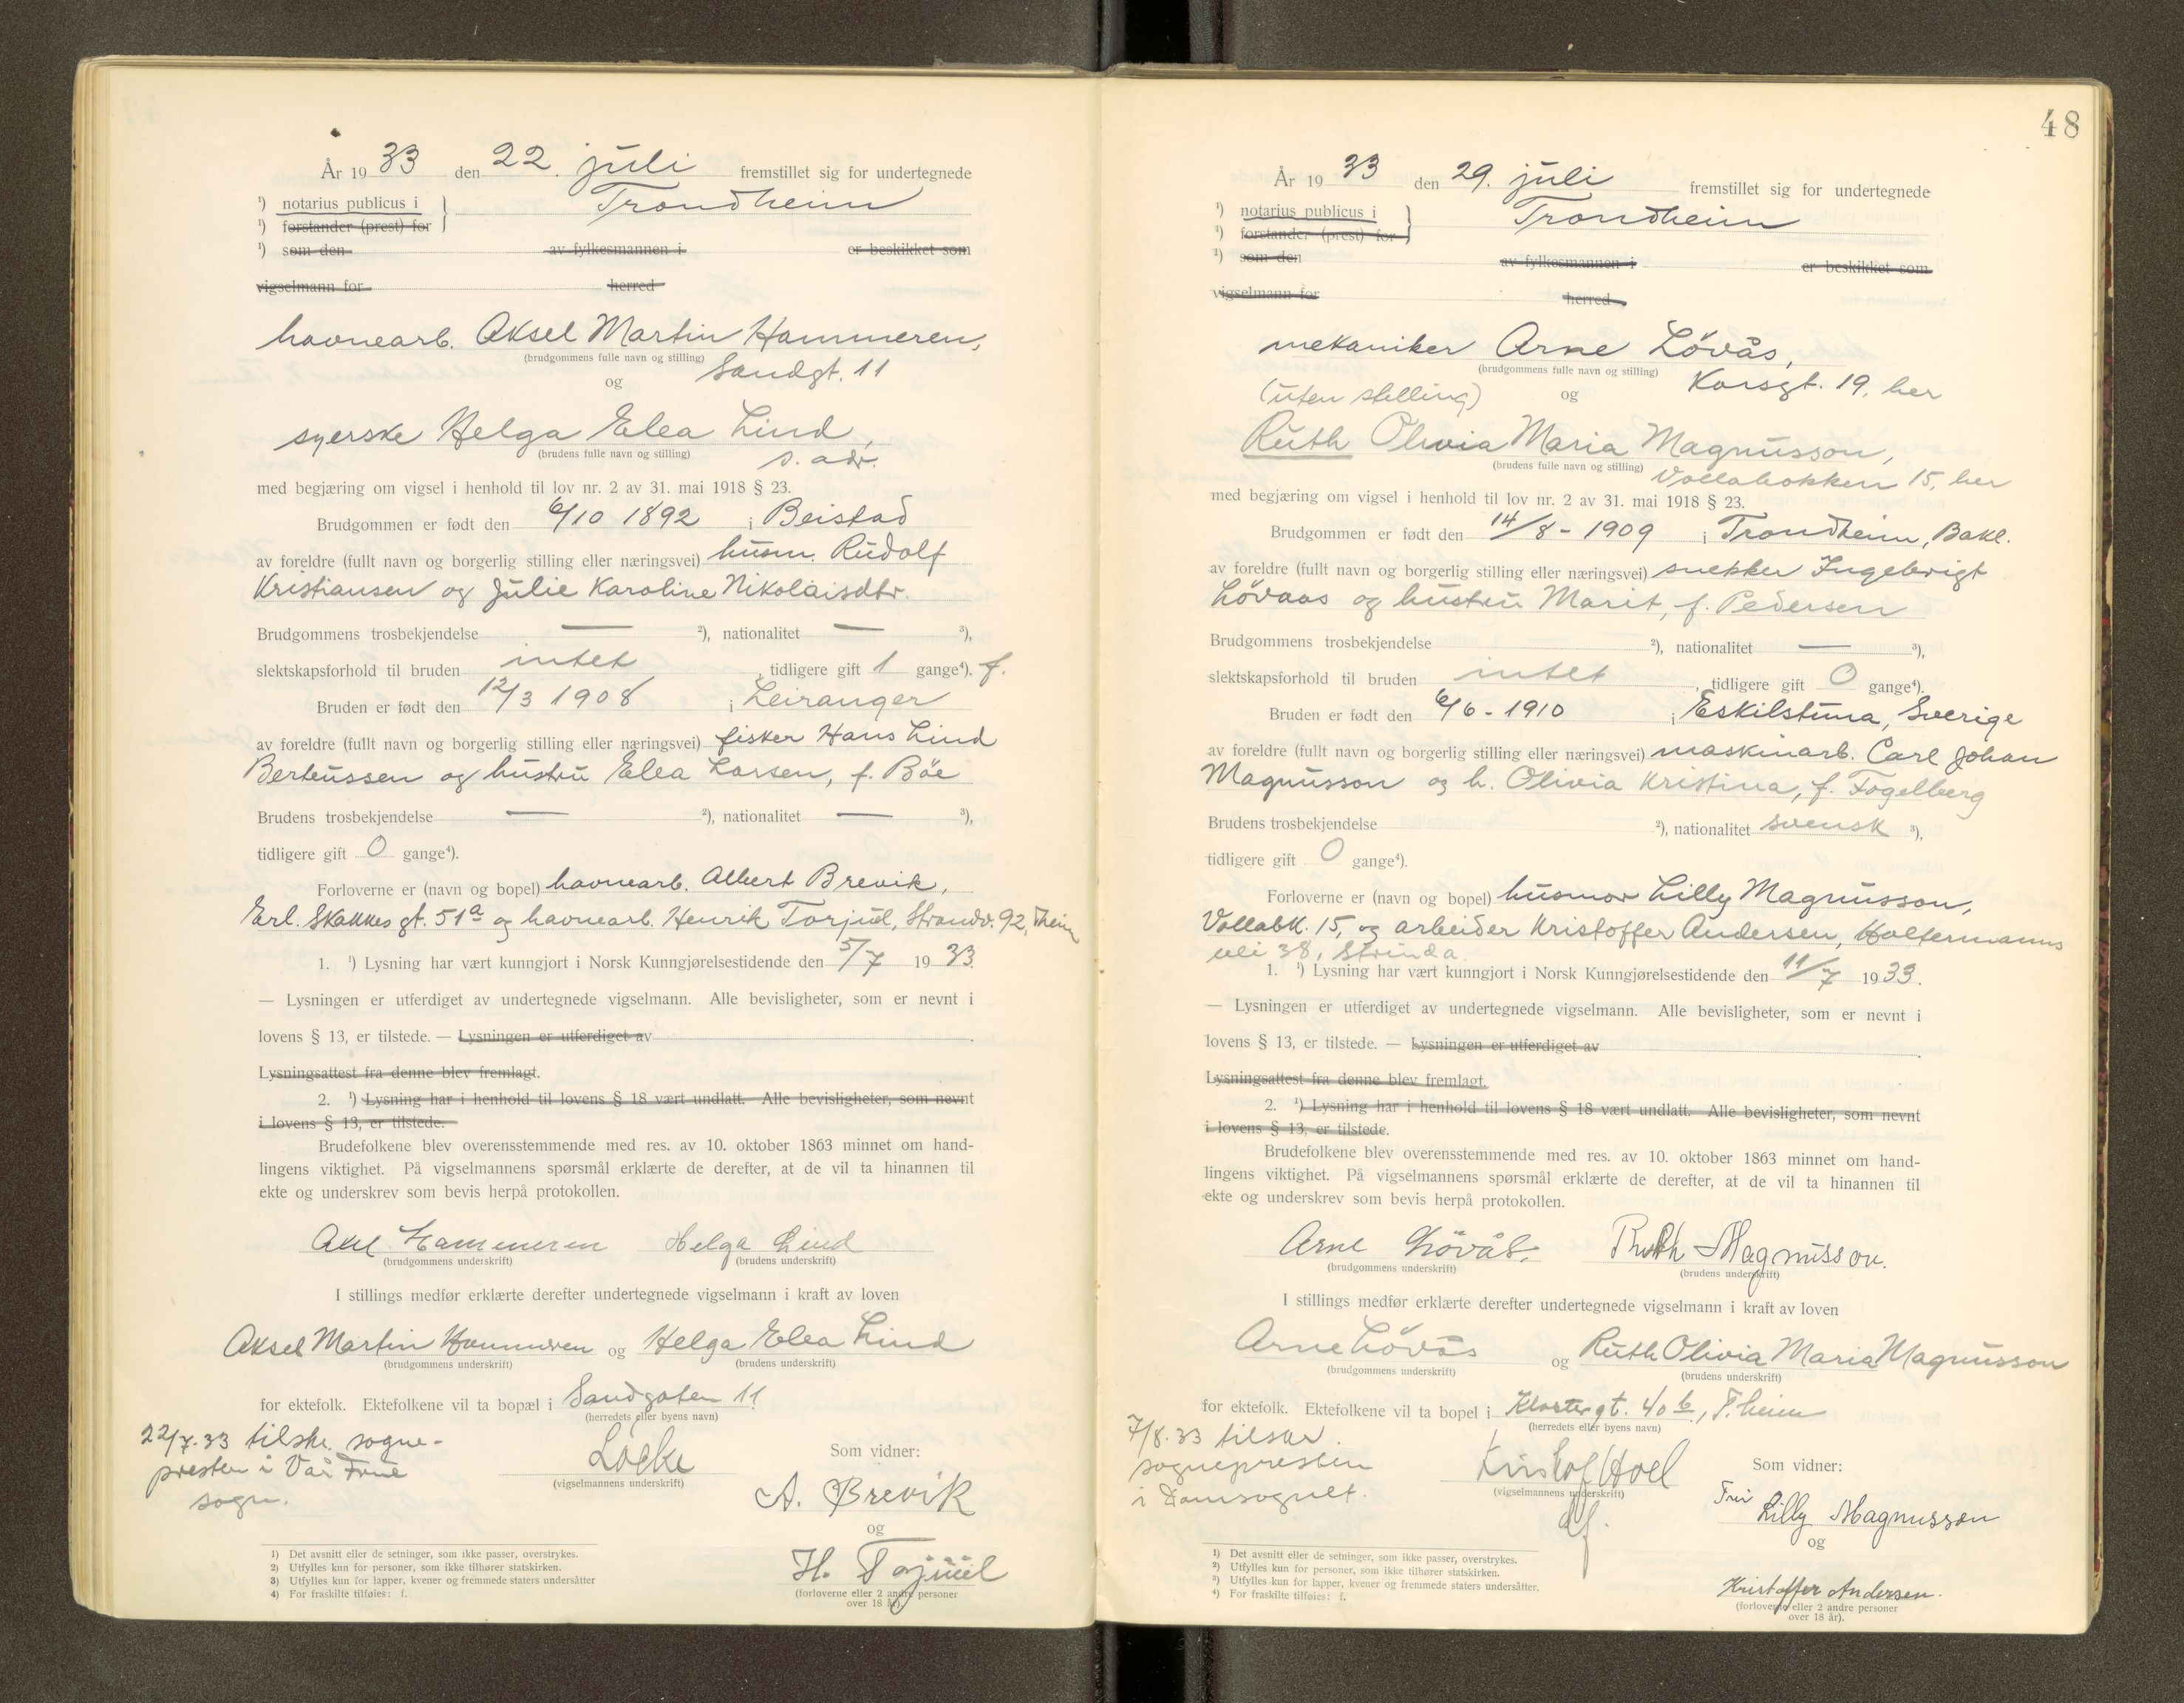 År 1933 den 22. juli fremstillet sig for undertegnede
¹) notarius publicus i
Trondheim
¹) forstander (prest) for
¹) som den av fylkesmannen i er beskikket som
vigselmann for herred
havnearb. Aksel Martin Hammeren,
(brudgommens fulle navn og stilling)
og Sandgt. 11
syerske Helga Elea Lind,
(brudens fulle navn og stilling) s. adr.
med begjæring om vigsel i henhold til lov nr. 2 av 31. mai 1918 § 23.
Brudgommen er født den 6/10 1892 i Beistad
av foreldre (fullt navn og borgerlig stilling eller næringsvei) husm. Rudolf
Kristiansen og Julie Karoline Nikolaisdtr.
Brudgommens trosbekjendelse — ²), nationalitet — ³),
slektskapsforhold til bruden intet, tidligere gift 1 gange⁴). f.
Bruden er født den 12/3 1908 i Leiranger
av foreldre (fullt navn og borgerlig stilling eller næringsvei) fisker Hans Lind
Berteussen og hustru Elea Larsen, f. Böe
Brudens trosbekjendelse — ²), nationalitet — ³),
tidligere gift 0 gange⁴).
Forloverne er (navn og bopel) havnearb. Albert Brevik,
Erl. Skakkes gt. 51a og havnearb. Henrik Torjul, Strandv. 92, Theim
1. ¹) Lysning har vært kunngjort i Norsk Kunngjørelsestidende den 5/7 1933.
— Lysningen er utferdiget av undertegnede vigselmann. Alle bevisligheter, som er nevnt i
lovens § 13, er tilstede. — Lysningen er utferdiget av
Lysningsattest fra denne blev fremlagt.
2. ¹) Lysning har i henhold til lovens § 18 vært undlatt. Alle bevisligheter, som nevnt
i lovens § 13, er tilstede.
Brudefolkene blev overensstemmende med res. av 10. oktober 1863 minnet om hand-
lingens viktighet. På vigselmannens spørsmål erklærte de derefter, at de vil ta hinannen til
ekte og underskrev som bevis herpå protokollen.
Axel Hammeren Helga Lind
(brudgommens underskrift) (brudens underskrift)
I stillings medfør erklærte derefter undertegnede vigselmann i kraft av loven
Aksel Martin Hammeren og Helga Elea Lind
(brudgommens underskrift) (brudens underskrift)
for ektefolk. Ektefolkene vil ta bopæl i Sandgaten 11
(herredets eller byens navn)
22/7-33 tilskr. sogne-
presten i Vår Frue
sogn.
Löcke
(vigselmannens underskrift)
Som vidner:
A. Brevik
og
H. Torjul
(forloverne eller 2 andre personer
over 18 år).
1) Det avsnitt eller de setninger, som ikke passer, overstrykes.
2) Utfylles kun for personer, som ikke tilhører statskirken.
3) Utfylles kun for lapper, kvener og fremmede staters undersåtter
4) For fraskilte tilføies: f.
48
År 1933 den 29. juli fremstillet sig for undertegnede
¹) notarius publicus i
Trondheim
¹) forstander (prest) for
¹) som den av fylkesmannen i er beskikket som
vigselmann for herred
mekaniker Arne Lövås,
(brudgommens fulle navn og stilling)
(uten stilling) og Korsgt. 19, her
Ruth Olivia Maria Magnusson,
(brudens fulle navn og stilling) Vollabakken 15, her
med begjæring om vigsel i henhold til lov nr. 2 av 31. mai 1918 § 23.
Brudgommen er født den 14/8 - 1909 i Trondheim, Bakl.
av foreldre (fullt navn og borgerlig stilling eller næringsvei) snekker Ingebrigt
Lövaas og hustru Marit, f. Pedersen
Brudgommens trosbekjendelse ²), nationalitet — ³),
slektskapsforhold til bruden intet, tidligere gift 0 gange⁴).
Bruden er født den 6/6 - 1910 i Eskilstuna, Sverige
av foreldre (fullt navn og borgerlig stilling eller næringsvei) maskinarb. Carl Johan
Magnusson og h. Olivia Kristina, f. Fogelberg
Brudens trosbekjendelse ²), nationalitet svensk ³),
tidligere gift 0 gange⁴).
Forloverne er (navn og bopel) husmor Lilly Magnusson,
Vollabk. 15, og arbeider Kristoffer Andersen, Holtermanns
vei 38, Strinda
1. ¹) Lysning har vært kunngjort i Norsk Kunngjørelsestidende den 11/7 1933.
— Lysningen er utferdiget av undertegnede vigselmann. Alle bevisligheter, som er nevnt i
lovens § 13, er tilstede. — Lysningen er utferdiget av
Lysningsattest fra denne blev fremlagt.
2. ¹) Lysning har i henhold til lovens § 18 vært undlatt. Alle bevisligheter, som nevnt
i lovens § 13, er tilstede.
Brudefolkene blev overensstemmende med res. av 10. oktober 1863 minnet om hand-
lingens viktighet. På vigselmannens spørsmål erklærte de derefter, at de vil ta hinannen til
ekte og underskrev som bevis herpå protokollen.
Arne Lövås. Ruth Magnusson.
(brudgommens underskrift) (brudens underskrift)
I stillings medfør erklærte derefter undertegnede vigselmann i kraft av loven
Arne Lövås og Ruth Olivia Maria Magnusson
(brudgommens underskrift) (brudens underskrift)
for ektefolk. Ektefolkene vil ta bopel i Klostergt. 40 b, T.heim
(herredets eller byens navn)
7/8.33 tilskr.
sognepresten
i Domsognet.
Kristof Hoel
(vigselmannens underskrift)
Som vidner:
Fru Lilly Magnusson
og
Kristoffer Andersen.
(forloverne eller 2 andre personer
over 18 år).
1) Det avsnitt eller de setninger, som ikke passer, overstrykes.
2) Utfylles kun for personer, som ikke tilhører statskirken.
3) Utfylles kun for lapper, kvener og fremmede staters undersåtter.
4) For fraskilte tilføies: f.